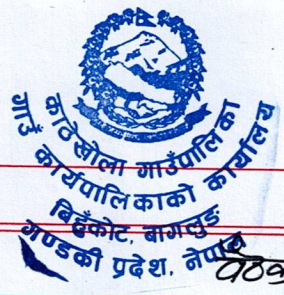 काठेखोला गाउँपालिका
गाउँ कार्यपालिकाको कार्यालय
बिहुँकोट, बागलुङ
गण्डकी प्रदेश, नेपाल